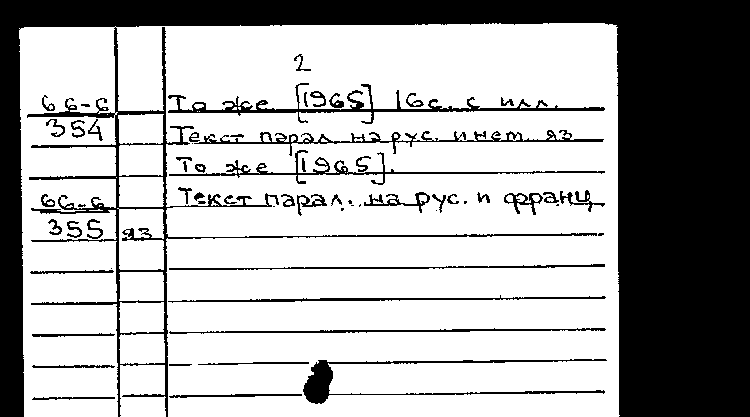 2
66-6 То же [1965] 16 с. с илл.
354 Текст парал. на рус. и нем. яз
То же [1965].
66-6 Текст парал. на рус. и франц
355 яз